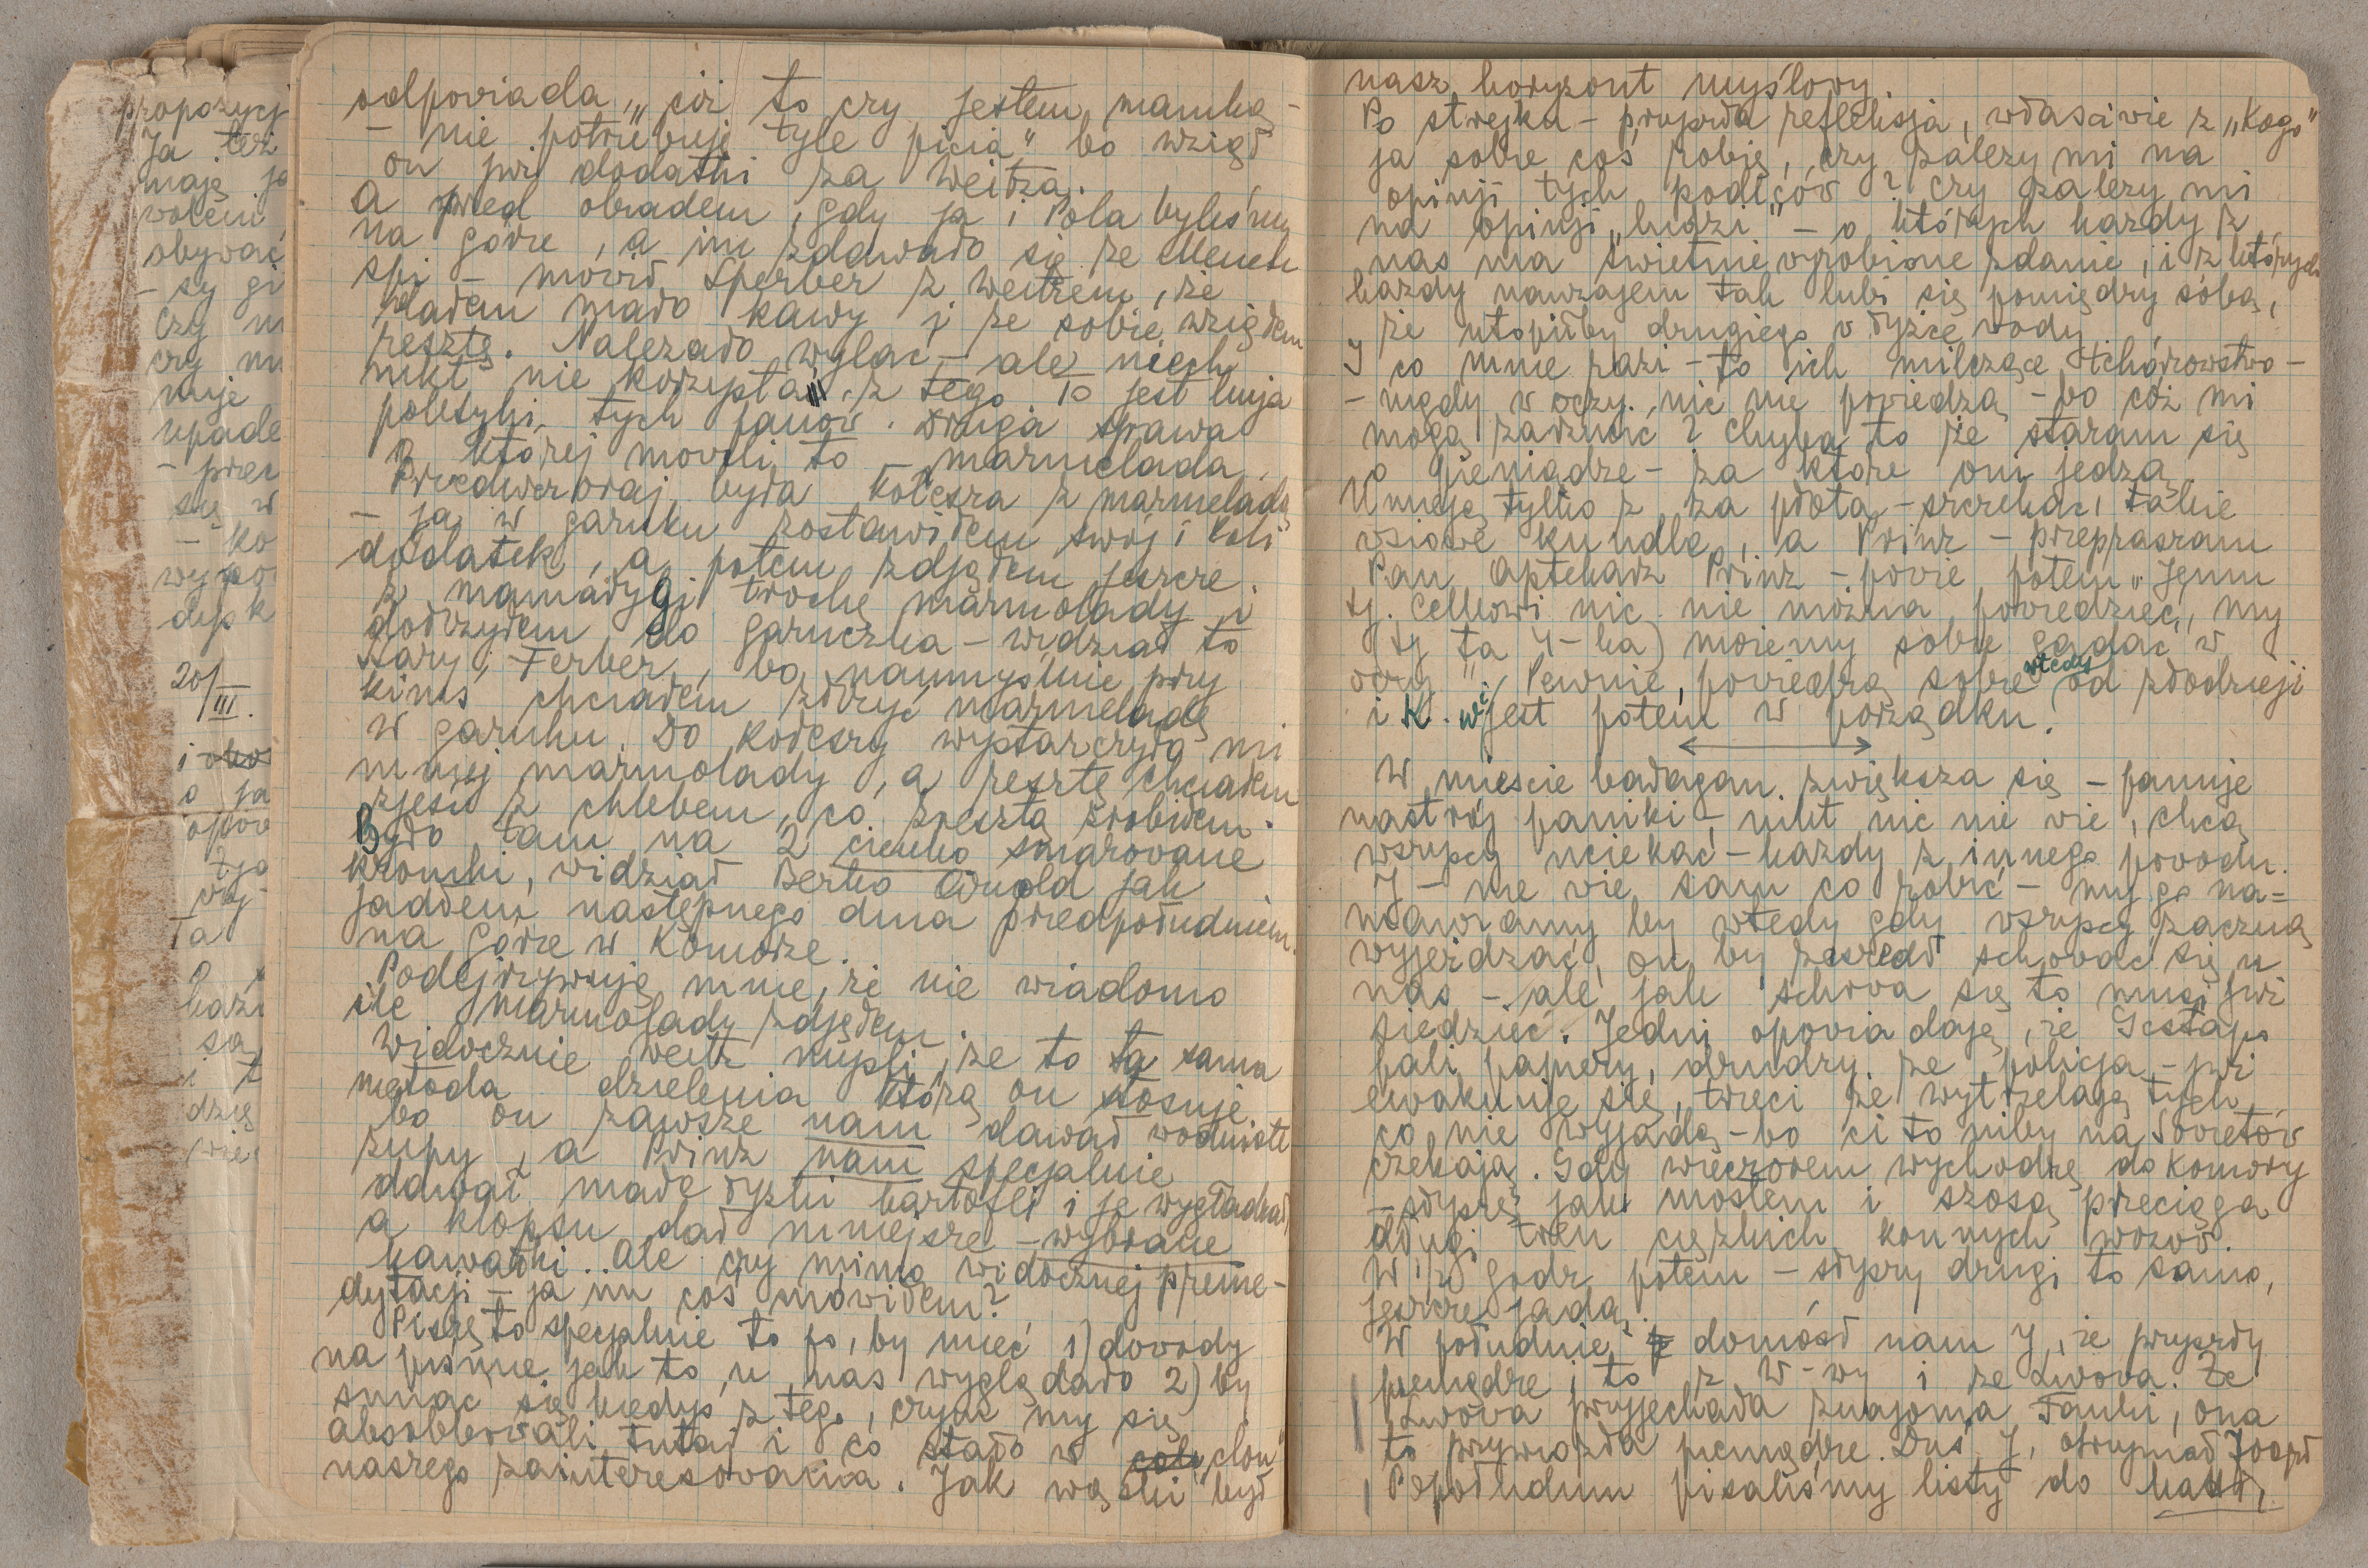 propozycj
Ja też
maję ja
wolem
obywać
- są gi
Czy m
czy mu
muje
upade
- przec
się w
- ko
wypo
dysk
20/III.
i oko
o ja
opow
Ta
kazi
są
i t
dzię
odpowiada „cóż to czy jestem mamką -
- nie potrzebuje tyle picia" bo wziął
on już dodatki za Weitza.
A przed obiadem, gdy ja i Pola byliśmy
na górze, a im zdawało się że Menek
śpi - mówił Sperber z Weitzem, że
dałem mało kawy i że sobie wziąłem
resztę. Należało wylać, - ale niech
nikt nie korzysta. z tego to jest linja
polityki tych panów. Druga sprawa
o której mówili to - marmelada.
Przedwczoraj była kołesza z marmeladą
- ja w garnku zostawiłem swój i Poli
dodatek, a potem zdjąłem jeszcze
z mamałygi trochę marmolady i
dołożyłem do garnczka - widział to
stary Ferber, bo naumyślnie przy
kimś chciałem złożyć marmeladę
w garnku. Do kołeszy wystarczyła mi
mniej marmolady, a resztę chciałem
zjeść z chlebem, co zresztą zrobiłem.
Było tam na 2 cienko smarowane
kromki, widział Berko Arnold jak
jadłem następnego dnia przedpołudniem
na górze w komórze.
Podejrzywuję mnie, że nie wiadomo
ile marmolady zdjąłem.
Widocznie Weitz myśli, że to ta sama
metoda dzielenia którą on stosuje
bo on zawsze nam dawał wodniste
zupy, a Prinz nam specjalnie
dawał małe łyżki kartofli i je wygładzał
a klopsu dał mniejsze - wybrane
kawałki. Ale czy mimo widocznej preme-
dytacji - ja im coś mówiłem?
Piszę to specjalnie to po, by mieć 1) dowody
na piśmie jak to u nas wyglądało 2) by
śmiać się kiedyś z tego, czym my się
absolbowali tutaj i co stało w clou
naszego zainteresowania. Jak wąski był
nasz horyzont myślowy.
Po strejku - przyszła refleksja, właściwie z „Kogo"
ja sobie coś robię, czy zależy mi na
opinji tych podlców? Czy zależy mi
na opinji „ludzi" - o których każdy z
nas ma świetnie wyrobione zdanie, i z których
każdy nawzajem tak lubi się pomiędzy sobą,
że utopiłby drugiego w łyżce wody
I co mnie razi - to ich milczące tchórzowstwo -
- nigdy w oczy, nic nie powiedzą - bo cóż mi
mogą zarzucić? Chyba to że staram się
o pieniądze - za które oni jedzą
Umieją tylko z za płota - szczekać, takie
wsiowe kundle, a Prinz - przepraszam
Pan Aptekarz Prinz - powie potem „Jemu
tj. Celkowi nic nie można powiedzieć, my
tj ta 4-ka) możemy sobie gadać w
oczy" Pewnie, powiedzą sobie wtedy od złodzieji
i K. wi jest potem w porządku.
W mieście bałagan zwiększa się - panuje
nastrój paniki -, nikt nic nie wie, chcą
wszyscy uciekać - każdy z innego powodu.
J - nie wie sam co robić - my go na=
mawiamy by wtedy gdy wszyscy zaczną
wyjeżdzać, on by zaszedł schować się u
nas - ale jak schowa się to musi już
siedzieć. Jedni opowiadają, że Gestapo
pali papiery, drudzy że policja - już
ewakuuje się, trzeci że wytrzelają tych
co nie wyjadą - bo ci to niby na Sowietów
czekają. Gdy wieczorem wychodzę do komory
- słyszę jak mostem i szosą przeciąga
długi tren ciężkich konnych wozów.
W ½ godz potem - słyszy drugi to samo,
jeszcze jadą.
W południe doniósł nam J, że przyszły
pieniądze i to z W-wy i ze Lwowa. Ze
Lwowa przyjechała znajoma Fanki, ona
to przywiozła pieniądze. Dziś J, otrzymał 700zł
Popołudniu pisaliśmy listy do